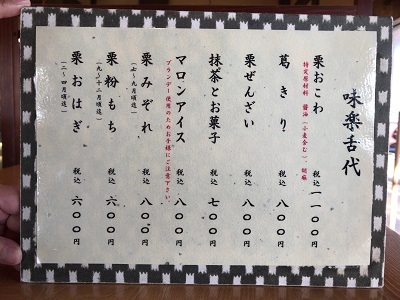 味楽舌代
栗おこわ 税込 一一〇〇円
特定原材料 醤油(小麦含む)、胡麻
葛きり 税込 八〇〇円
栗ぜんざい 税込 八〇〇円
抹茶とお菓子 税込 七〇〇円
マロンアイス 税込 八〇〇円
ブランデー使用のためお子様にご注意下さい。
栗みぞれ 税込 八〇〇円
(七～九月頃迄)
栗粉もち 税込 六〇〇円
(九～十二月頃迄)
栗おはぎ 税込 六〇〇円
(二～四月頃迄)